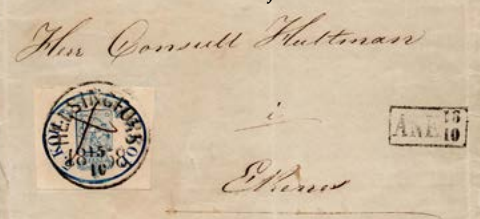 Herr Consull Hultman
i
Ekenes
HELSINGFORS
1858
15
10
KOP
ANK
16
10